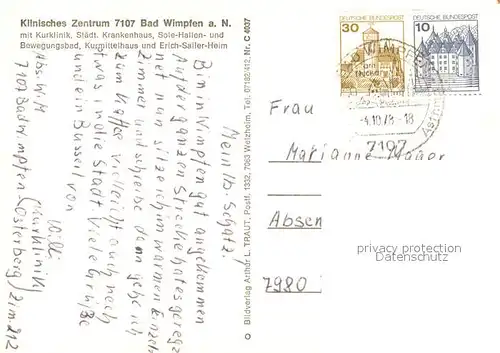 Klinisches Zentrum 7107 Bad Wimpfen a. N.
mit Kurklinik, Städt. Krankenhaus, Sole-Hallen- und
Bewegungsbad, Kurmittelhaus und Erich-Sailer-Heim
Mein lb. Schatz!
Bin in Wimpfen gut angekommen
Auf der ganzen Strecke hat es geregnet
nat nun sitze ich im warmen Einzel-
zimmer und schreibe dann gehe ich
zum Kaffee vielleicht auch noch
etwas in die Stadt. Viele Grüße
und ein Bussell von
Willi
Abs. W M (Kurklinik)
7107 Bad Wimpfen-Osterberg / Zim. 212
© Bildverlag Arthur L. TRAUT, Postf. 1332, 7063 Welzheim, Tel. 07182/412, Nr. C 4037
30
10
BAD WIMPFEN
-4.10.78-18
7107
Frau
Marianne Mayer
Absen
7980
privacy protection
www.oldthing.de